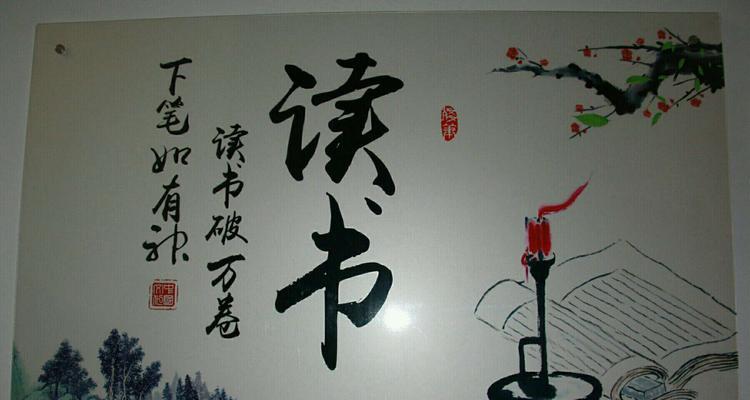 读书
读书破万卷
下笔如有神